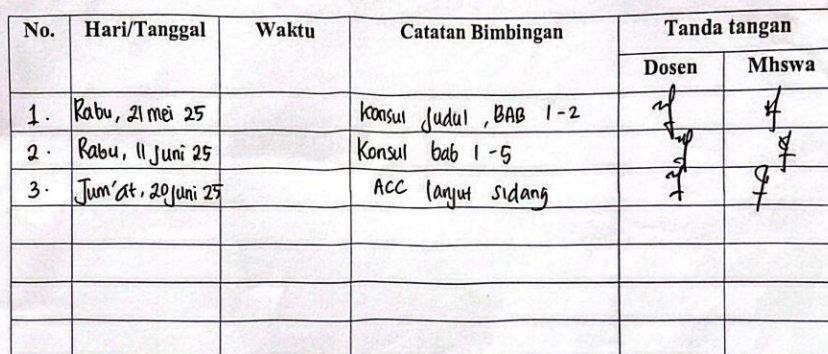 No. Hari/Tanggal Waktu Catatan Bimbingan Tanda tangan
Dosen Mhswa
1. Rabu, 21 mei 25 Konsul Judul, BAB 1-2
2. Rabu, 11 Juni 25 Konsul bab 1-5
3. Jum'at, 20 Juni 25 ACC lanjut sidang